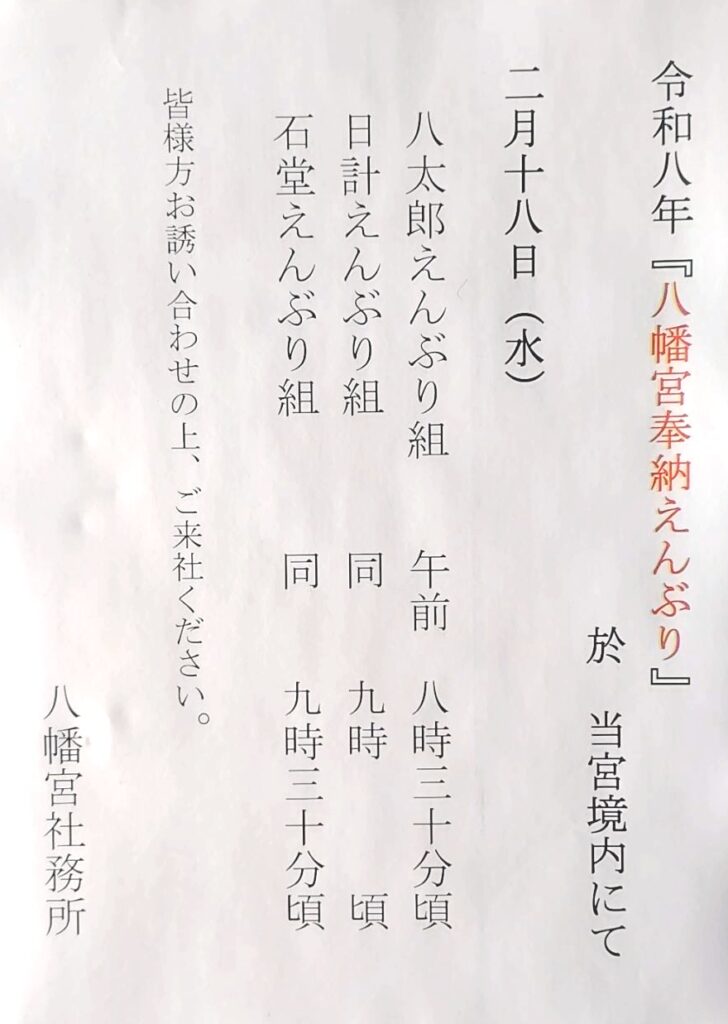 令和八年『八幡宮奉納えんぶり』
於　当宮境内にて
二月十八日（水）
八太郎えんぶり組　午前　八時三十分頃
日計えんぶり組　同　九時　頃
石堂えんぶり組　同　九時三十分頃
皆様方お誘い合わせの上、ご来社ください。
八幡宮社務所